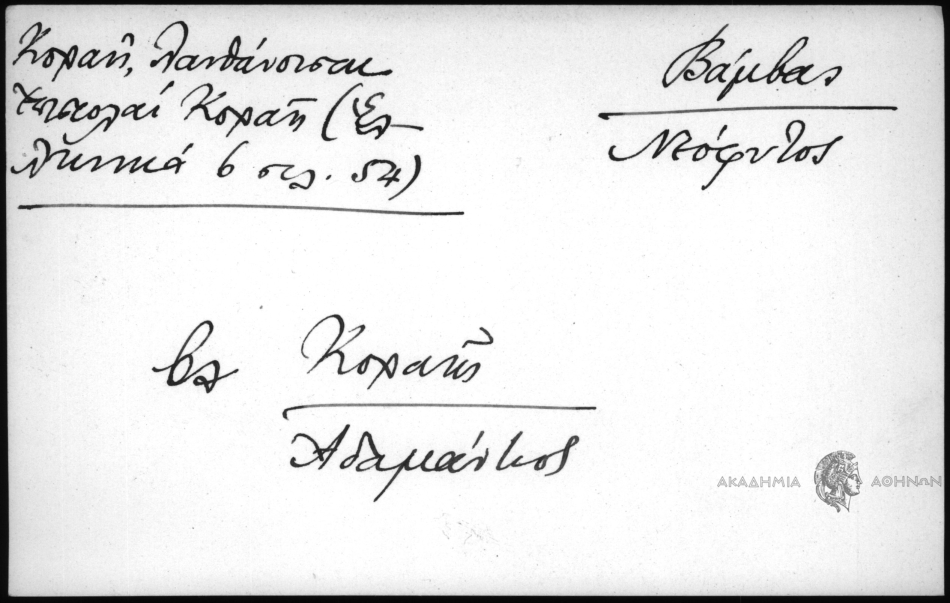 Κοραῆ, Λανθάνουσαι
ἐπιστολαί Κοραῆ (Ἑλ-
ληνικά 6 σελ. 54)
Βάμβας
Νεόφυτος
βλ Κοραῆς
Ἀδαμάντιος
ΑΚΑΔΗΜΙΑ ΑΘΗΝΩΝ